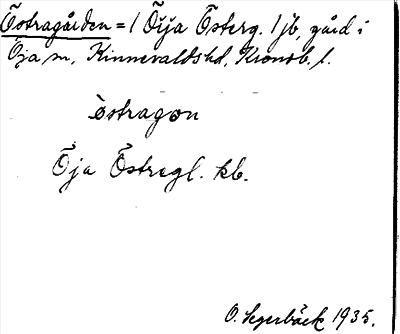 Östragården = / Öija Österg. 1 jb, gård i
Öja sn, Kinnevalds hd, Kronob. l.
östragọn
Öja Östregl. kb.
O. Segerbäck 1935.